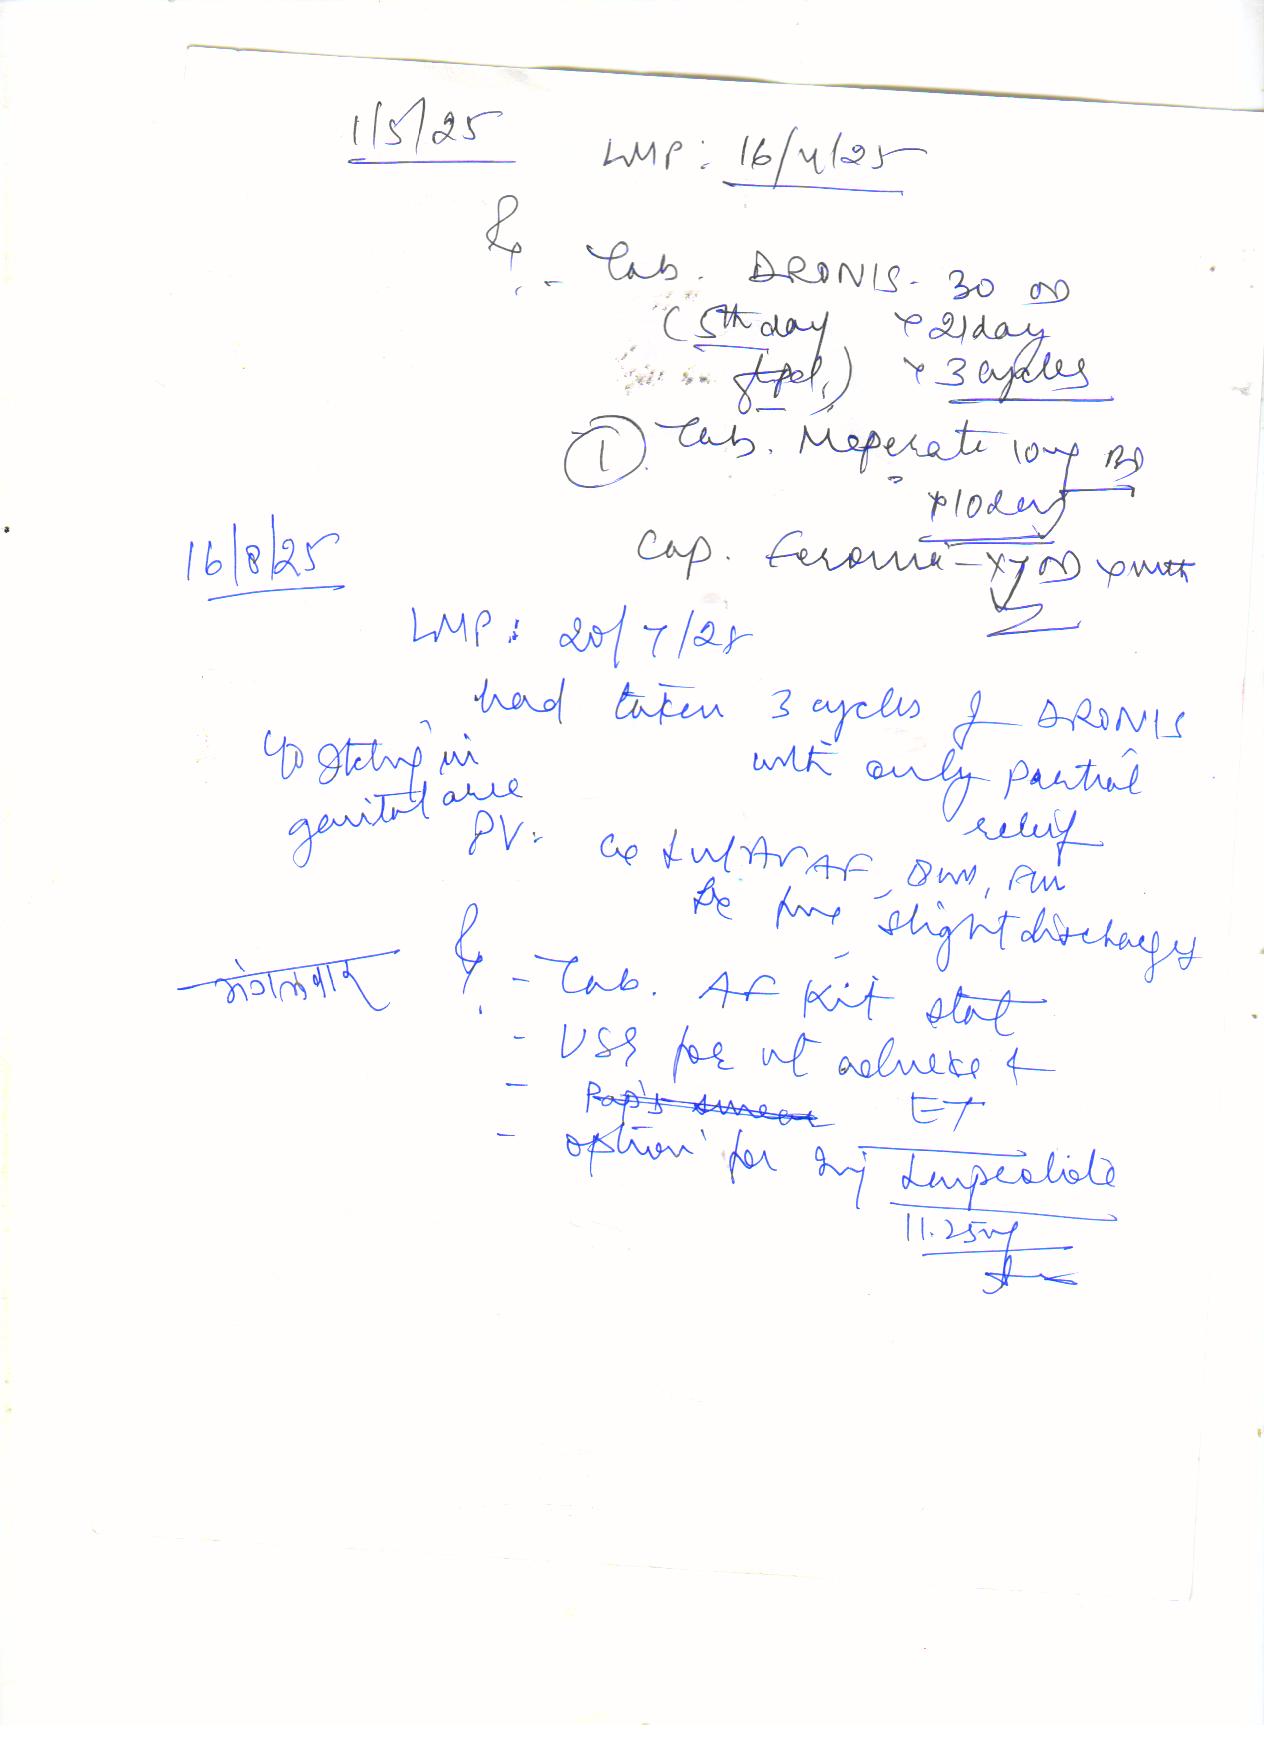 1/5/25
LMP: 16/4/25
Rx
- Tab. DRONIS-30 OD
(5th day × 21day
of pd.) × 3 cycles
① Tab. Meperate 10mg BD
×10days
Cap. Feromia-XT OD × mth
16/8/25
LMP: 20/7/25
had taken 3 cycles of DRONIS
with only partial
relief
c/o Itching in
genital area
PV: Cx ut AV AF, fn
slight discharge
मंगलवार
Rx
- Tab. AF Kit stat
- USG for ut adnexa &
ET
- Pap's smear
- option for Inj Leuprolide
11.25mg